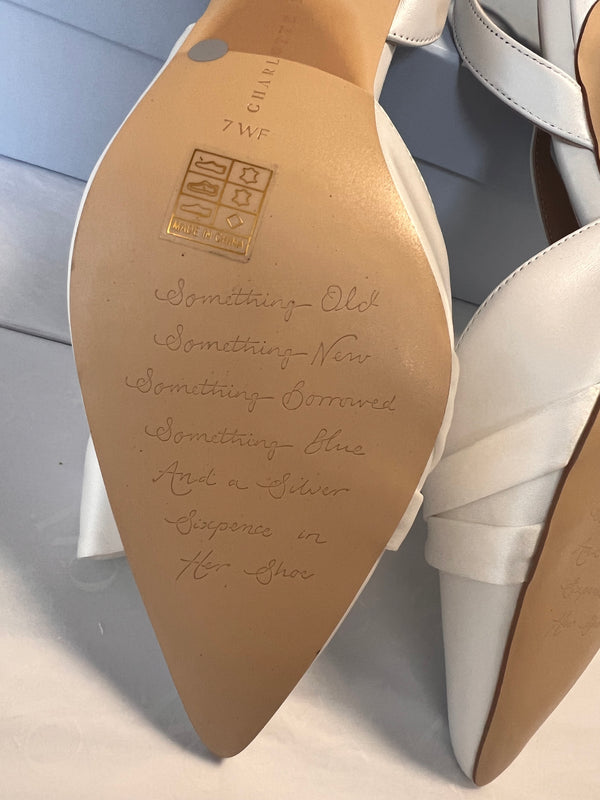 CHARLOTTE
7 WF
MADE IN CHINA
Something Old
Something New
Something Borrowed
Something Blue
And a Silver
Sixpence in
Her Shoe